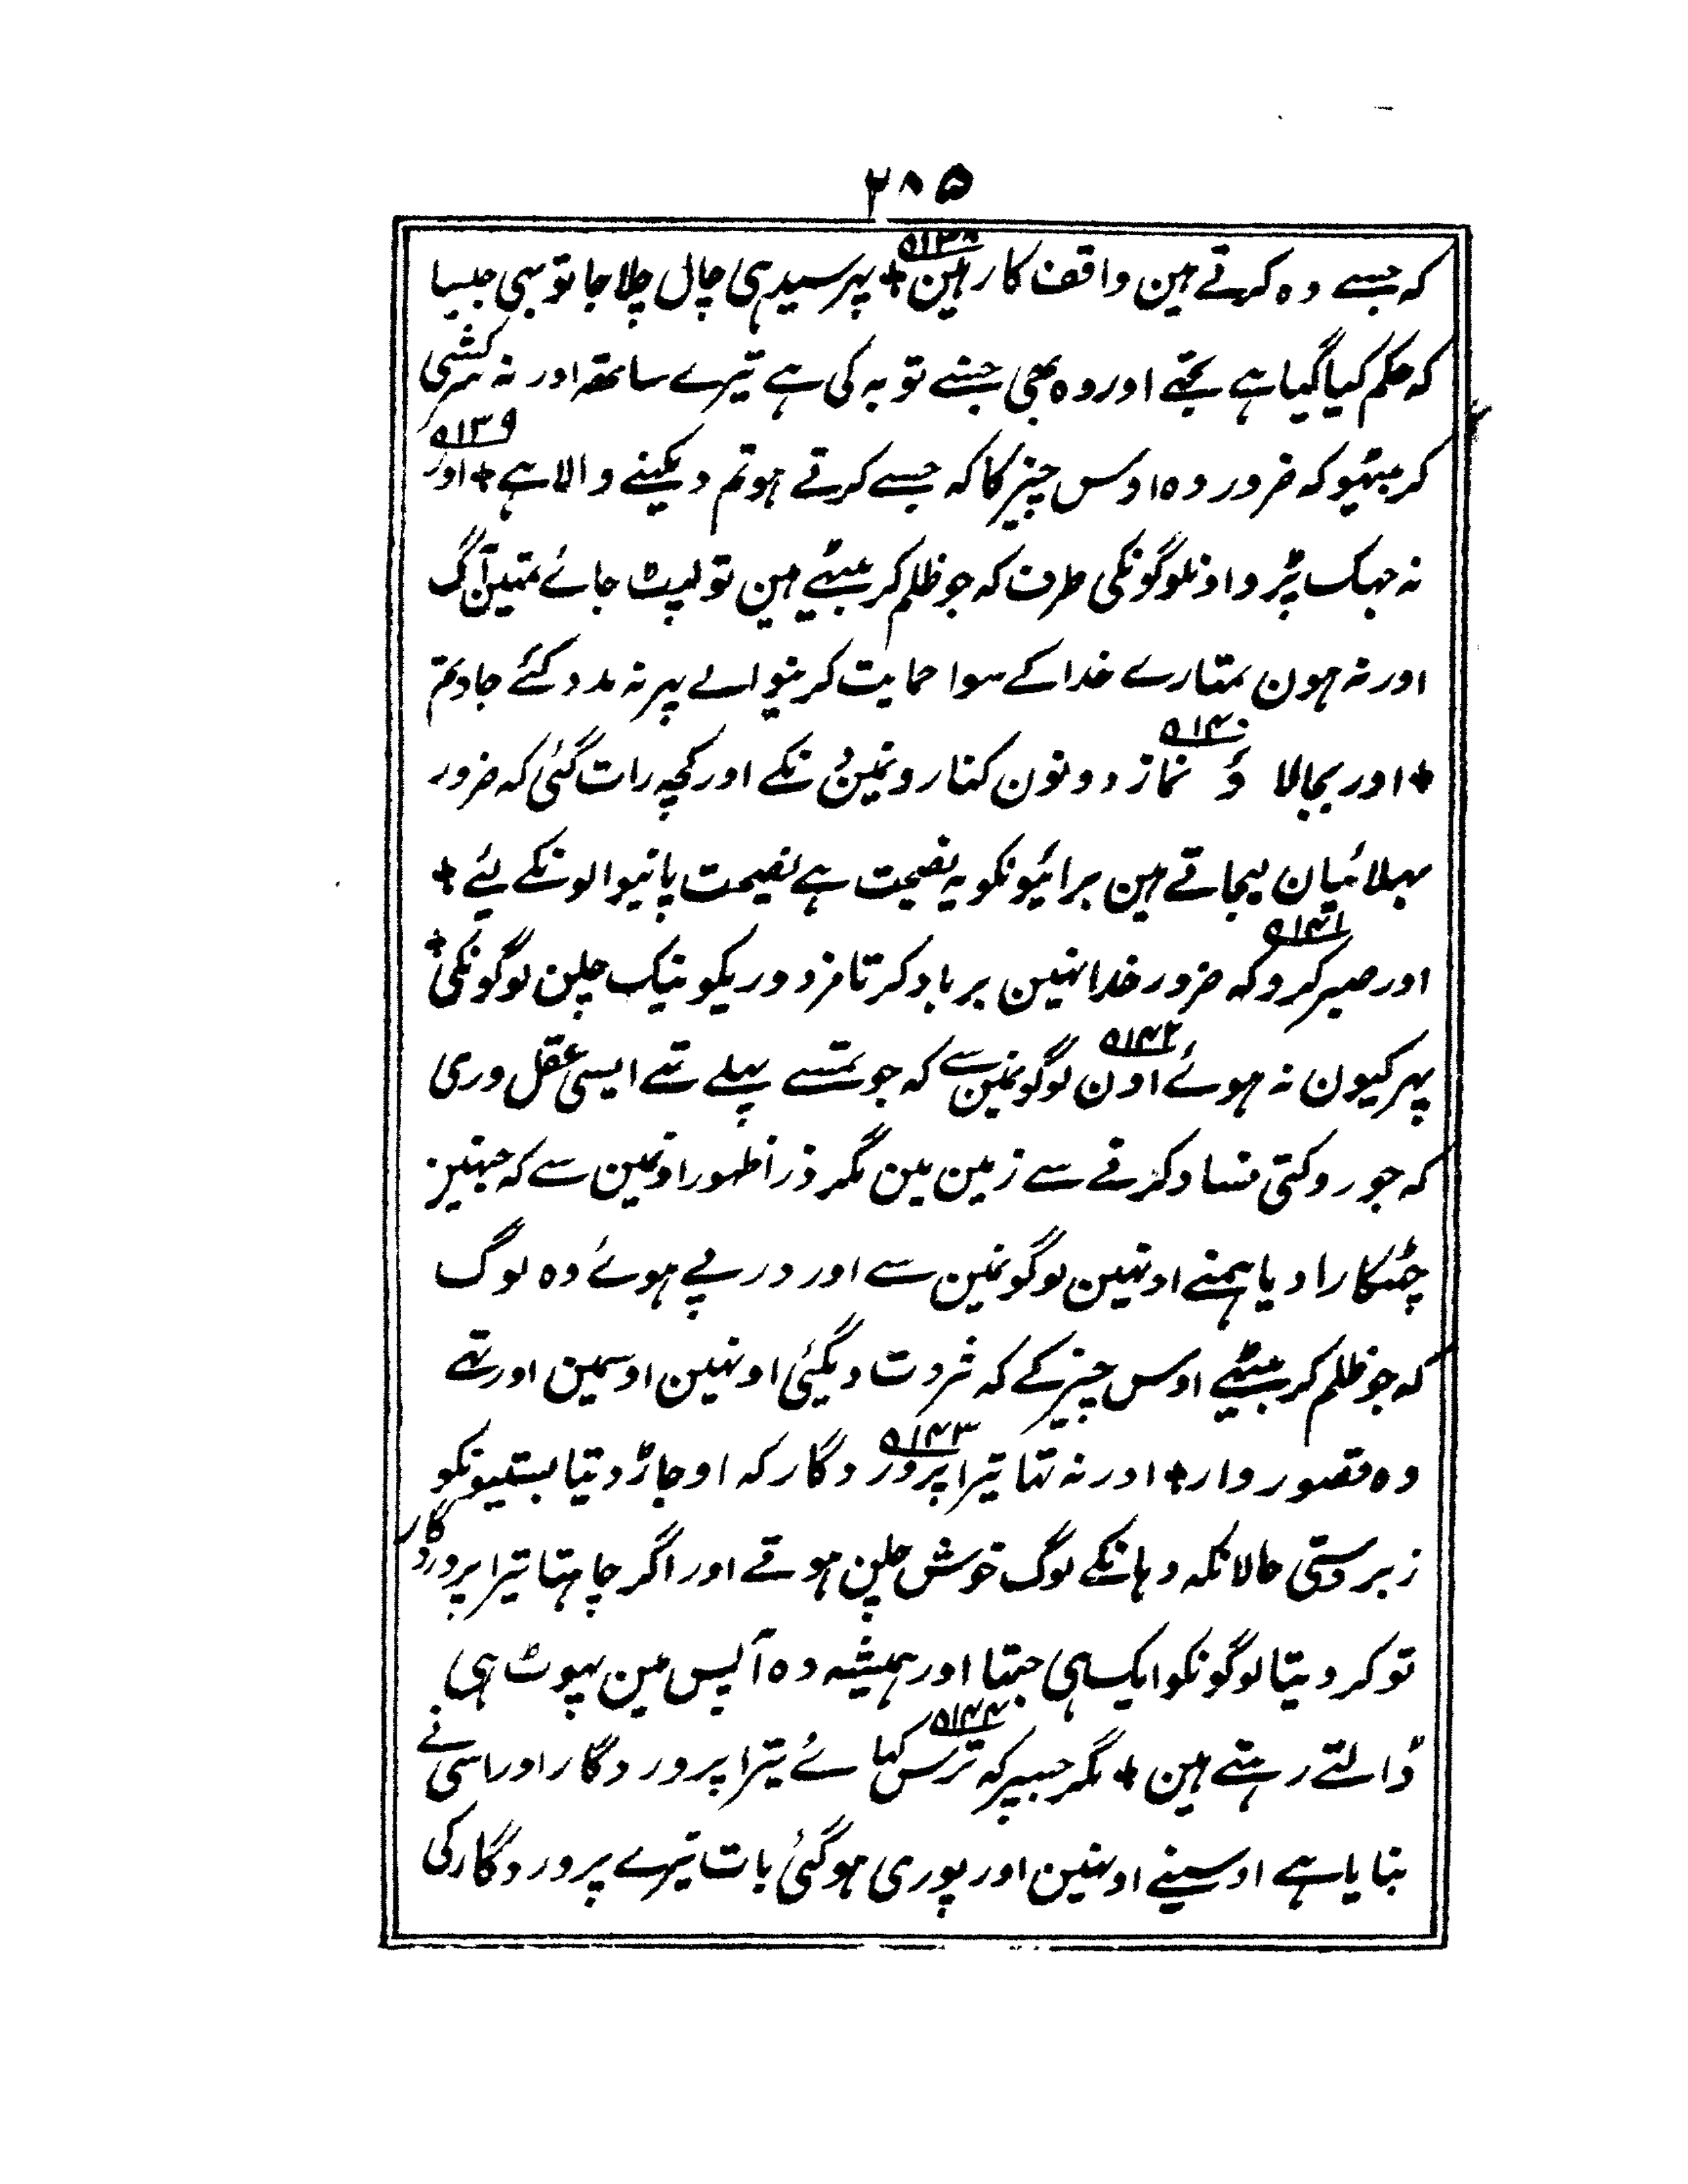 ۲۸۵
۵۱۳۸
کہ جسے وہ کرتے ہین واقف کار ہین + پہر سیدہی چال چلا جا تو بہی جیسا
کہ حکم کیا گیا ہے تجھے اور وہ بھی جسنے توبہ کی ہے تیرے ساتھ اور نہ سرکشی
۵۱۳۹
کر بیٹہو کہ ضرور وہ اوس چیز کا کہ جسے کرتے ہو تم دیکہنے والا ہے + اور
نہ جہک پڑو اونلوگونکی طرف کہ جو ظلم کر بیٹہے ہین تو لپٹ جائے تمہین آگ
اور نہ ہون تمہارے خدا کے سوا حمایت کرنیوالے پہر نہ مدد کئے جاؤ تم
۵۱۴۰
+ اور بجالا ؤ نماز دونون کنارونمین دنکے اور کچہ رات گئی کہ ضرور
بہلائیان لیجاتے ہین برائیونکو یہ نصیحت ہے نصیحت پانیوالونکے لیے +
۵۱۴۱
اور صبر کرو کہ ضرور خدا نہین برباد کرتا مزدوریکو نیک چلن لوگونکی +
۵۱۴۲
پہر کیون نہ ہوئے اون لوگونمین سے کہ جو تمسے پہلے تہے ایسی عقل وری
کہ جو روکتی فساد کرنے سے زمین مین مگر ذرا ظہور اونمین سے کہ جنہین
چہٹکارا دیا ہمنے اونہین لوگونمین سے اور درپے ہوئے وہ لوگ
کہ جو ظلم کر بیٹہے اوس چیز کے کہ ثروت دیگئی اونہین اوسمین اور تہے
۵۱۴۳
وہ قصور وار + اور نہ تہا تیرا پرور دگار کہ اوجاڑ دیتا بستیونکو
زبردستی حالانکہ وہانکے لوگ خوش چلن ہوتے اور اگر چاہتا تیرا پروردگار
تو کر دیتا لوگونکو ایک ہی جتہا اور ہمیشہ وہ آپس مین پہوٹ ہی
۵۱۴۴
ڈالتے رہتے ہین + مگر جسپر کہ ترس کہائے تیرا پرور دگار اور اسی لئے
بنایا ہے اوسینے اونہین اور پوری ہو گئی بات تیرے پرور دگار کی